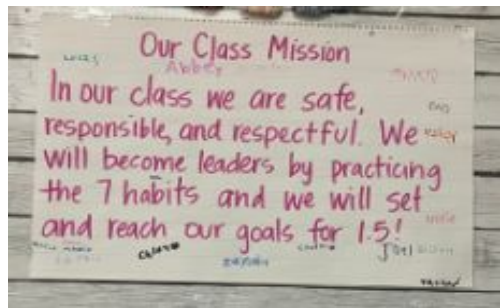 Our Class Mission
Abbey
In our class we are safe,
responsible, and respectful. We
will become leaders by practicing
the 7 habits and we will set
and reach our goals for 1.5!